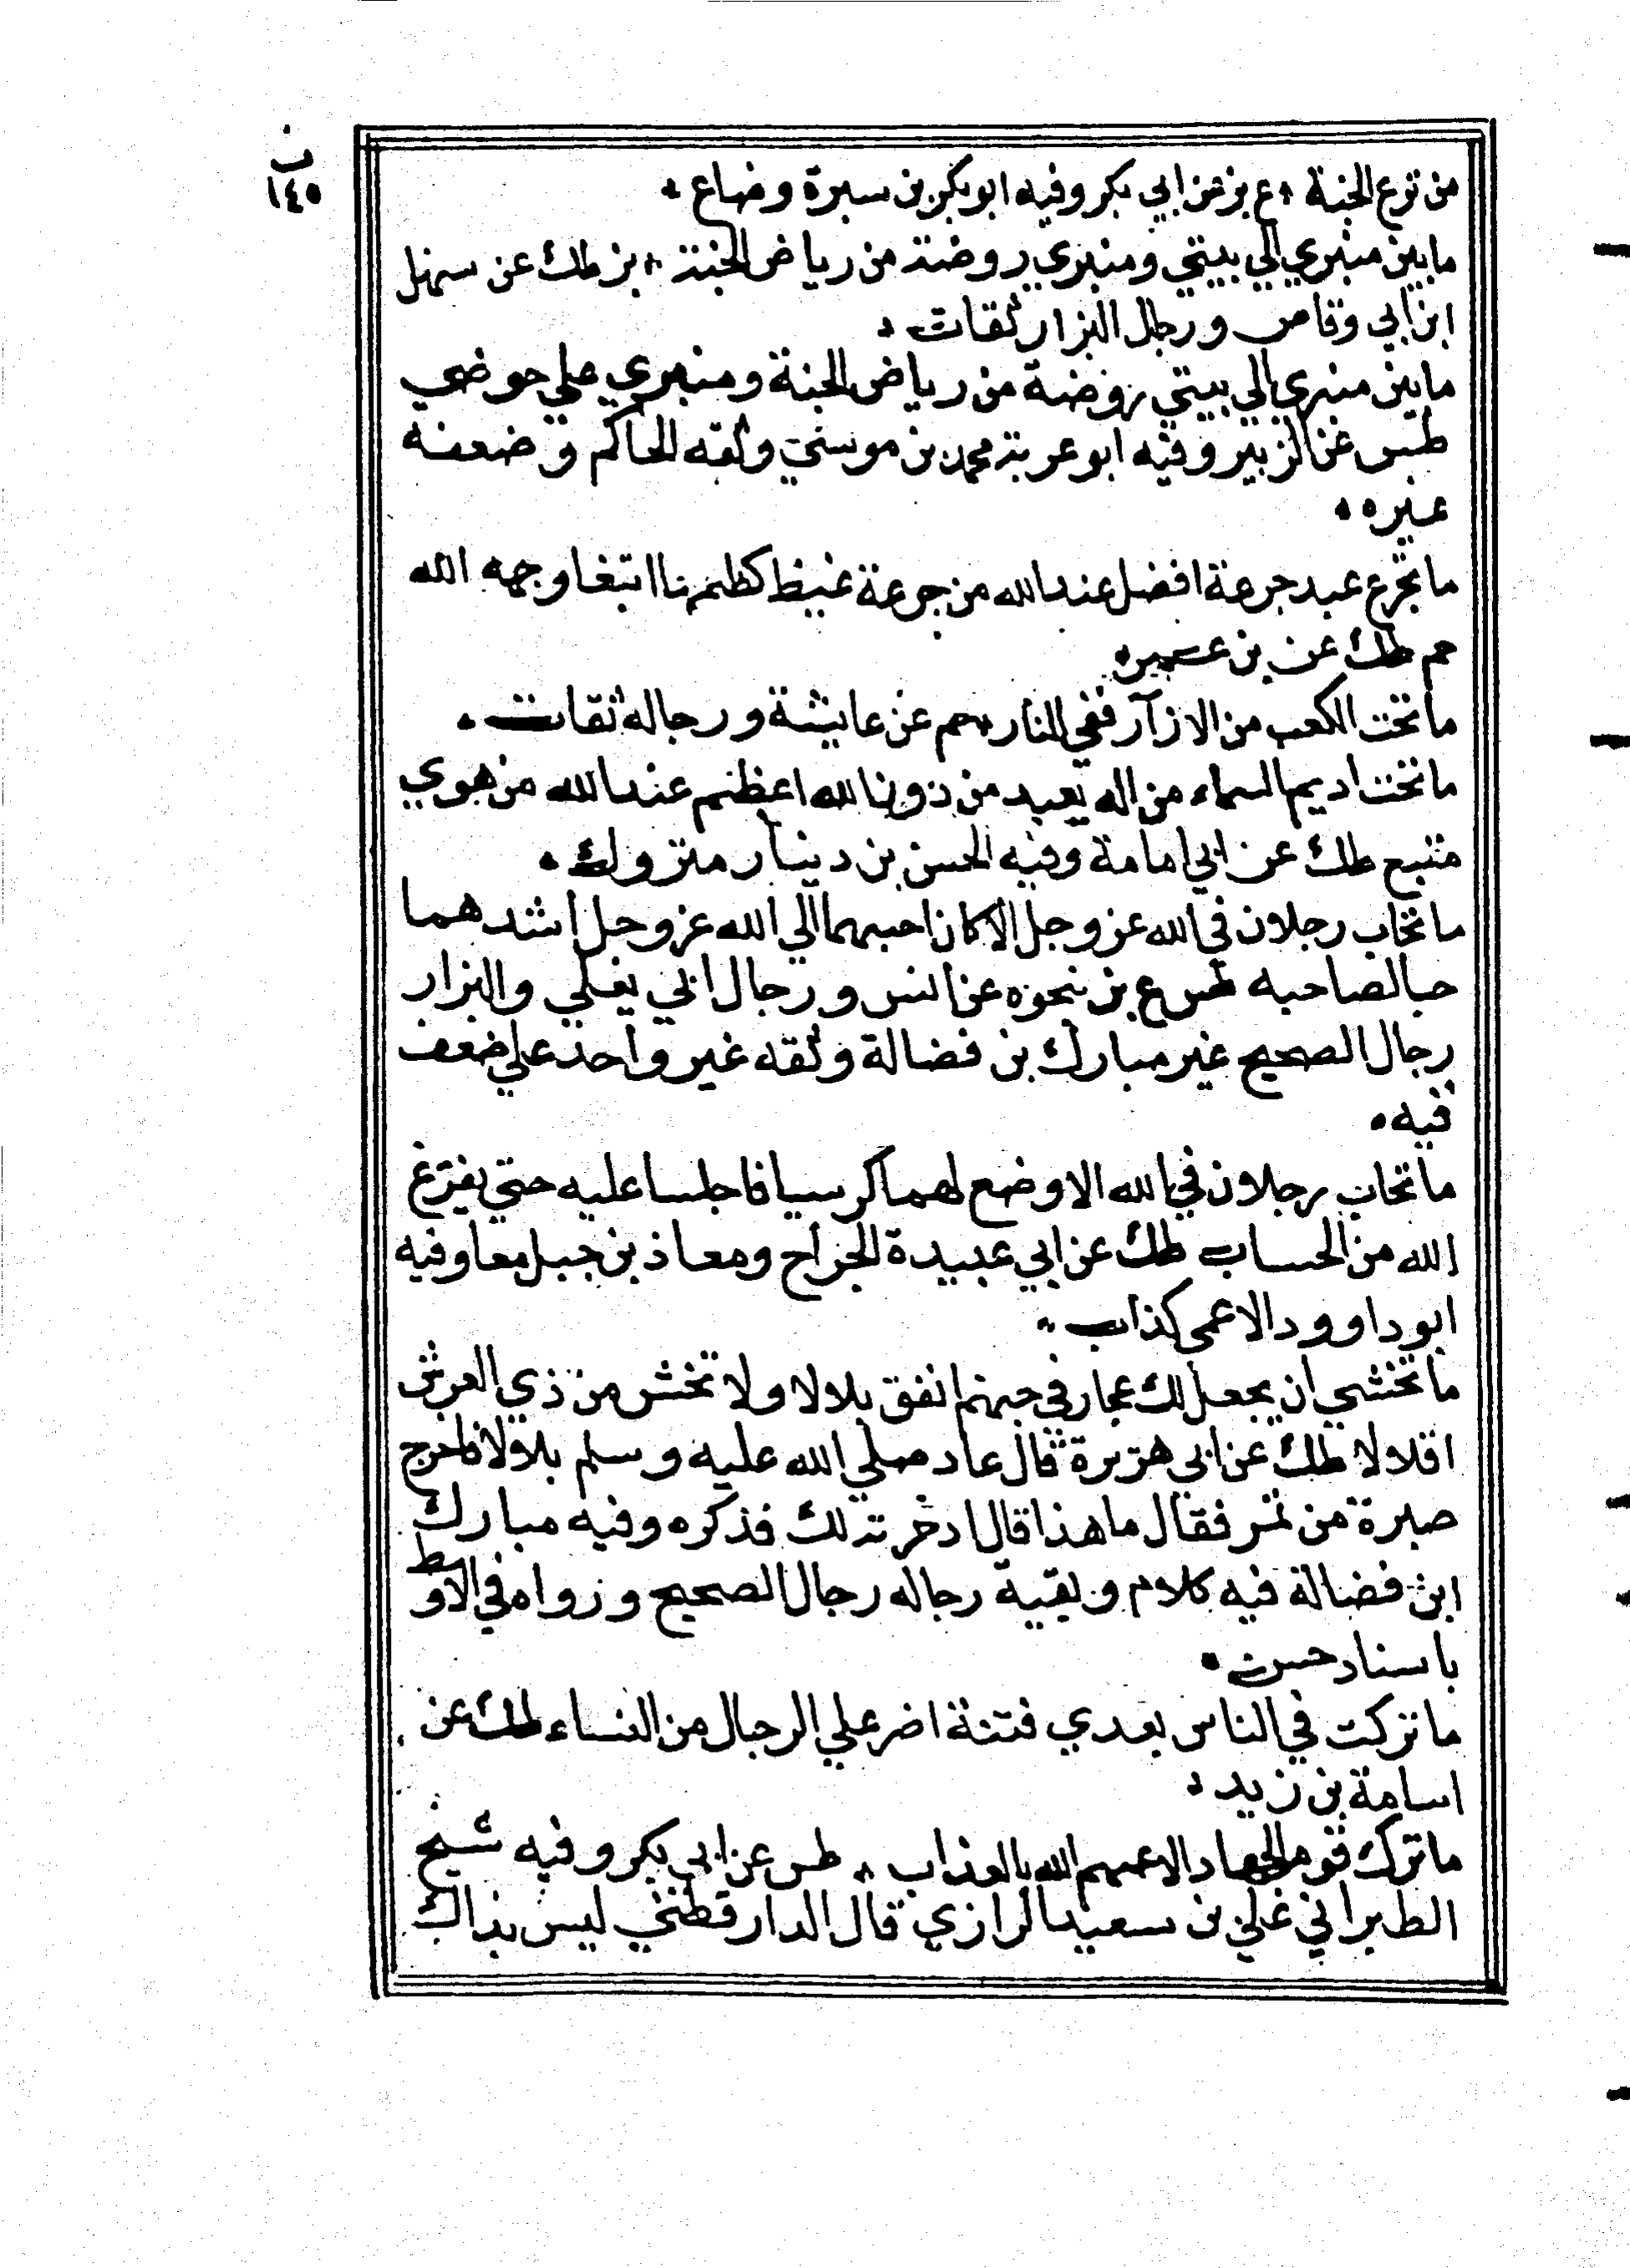 ب
١٤٥
من ترع الجنة ع بز عن ابي بكر وفيه ابو بكر بن سبرة وضاع
ما بين منبري الي بيتي ومنبري روضة من رياض الجنة بز طك عن سهل
ابن ابي وقاص ورجال البزار ثقات
ما بين منبري الي بيتي روضة من رياض الجنة ومنبري علي حوضي
طس عن الزبير وفيه ابو عربة محمد بن موسي وثقه الحاكم وضعفه
غيره
ما تجرع عبد جرعة افضل عند الله من جرعة غيظ كظمها ابتغا وجهه الله
حم طك عن بن عمر
ما تحت الكعب من الازآر ففي النار حم عن عايشة ورجاله ثقات
ما تحت اديم السماء من اله يعبد من دون الله اعظم عند الله من هوي
متبع طك عن ابي امامة وفيه الحسن بن دينار متروك
ما تحاب رجلان في الله عز وجل الا كان احبهما الي الله عز وجل اشدهما
حبا لصاحبه طس ع بز بنحوه عن انس ورجال ابي يعلي والبزار
رجال الصحيح غير مبارك بن فضالة وثقه غير واحد علي ضعف
فيه
ما تحاب رجلان في الله الا وضع لهما كرسيا فاجلسا عليه حتي يفرغ
الله من الحساب طك عن ابي عبيدة الجراح ومعاذ بن جبل معا وفيه
ابو داوود الاعمي كذاب
ما تخشي ان يجعل لك بخار في جهنم انفق بلالا ولا تخش من ذي العرش
اقلالا طك عن ابي هريرة قال عاد صلي الله عليه وسلم بلالا فاخرج
صبرة من تمر فقال ما هذا قال ادخرته لك فذكره وفيه مبارك
ابن فضالة فيه كلام وبقية رجاله رجال الصحيح ورواه في الاوسط
باسناد حسن
ما تركت في الناس بعدي فتنة اضر علي الرجال من النساء طك عن
اسامة بن زيد
ما ترك قوم الجهاد الا عمهم الله بالعذاب طس عن ابي بكر وفيه شيخ
الطبراني علي بن سعيد الرازي قال الدارقطني ليس بذاك